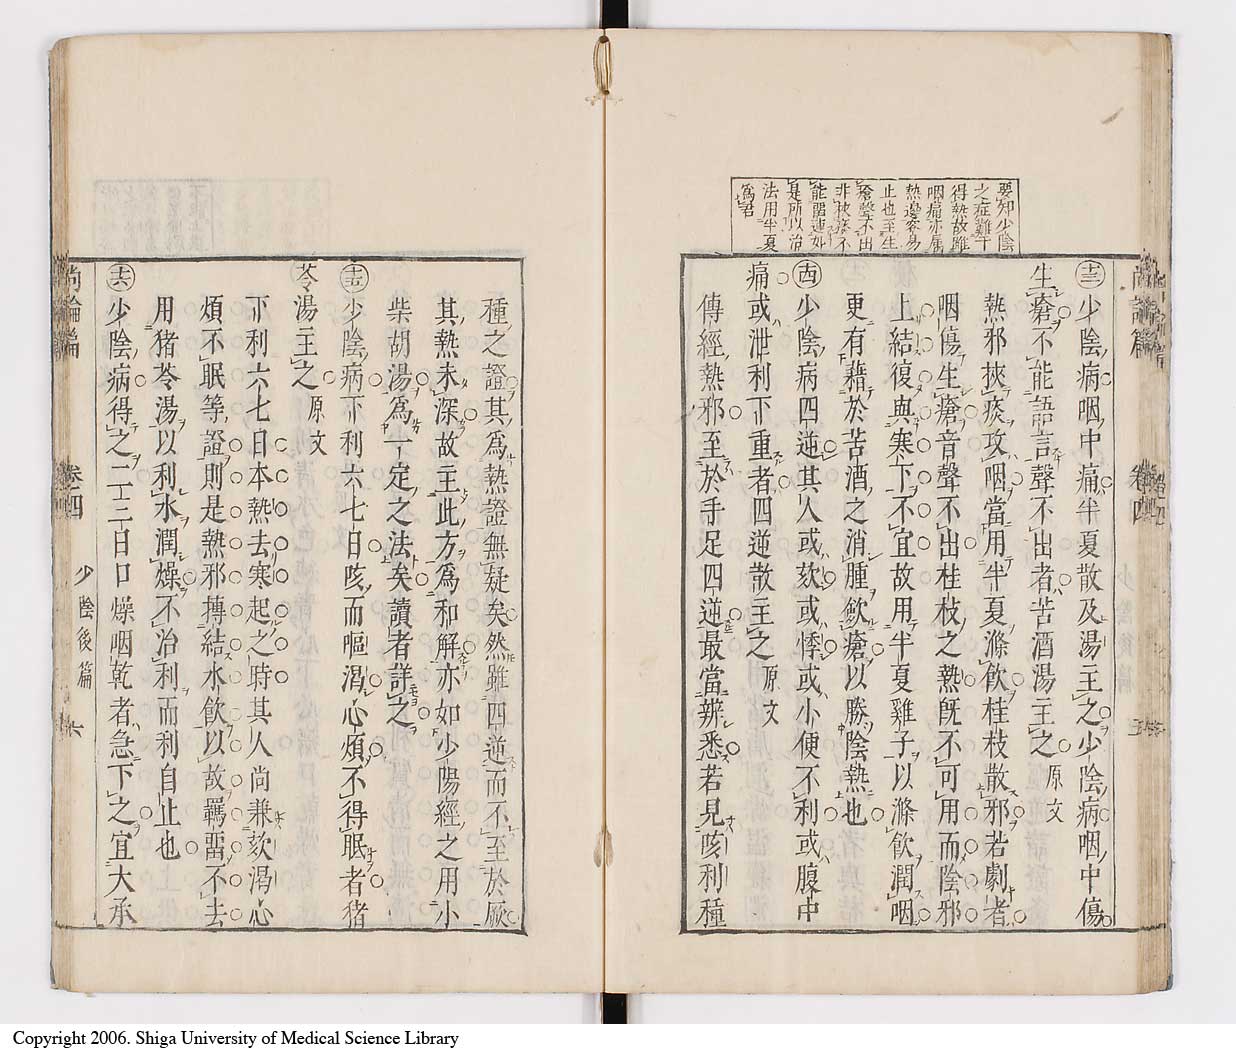 要知少陰
之症難于
得熱故雖
咽痛亦属
熱邊容易
止也至生
瘡聲不出
非挾痰不
能畱連如
是所以治
法用半夏
爲君
尚論篇
卷四
㊂少陰病咽中痛半夏散及湯主之少陰病咽中傷
生瘡不能語言聲不出者苦酒湯主之原文
熱邪挾痰攻咽當用半夏滌飲桂枝散邪若劇者
咽傷生瘡音聲不出桂枝之熱旣不可用而陰邪
上結復與寒下不宜故用半夏雞子以滌飲潤咽
更有藉於苦酒之消腫飲瘡以勝陰熱也
少陰病四逆其人或欬或悸或小便不利或腹中
痛或泄利下重者四逆散主之原文
傳經熱邪至於手足四逆最當辨悉若見咳利種
種之證其爲熱證無疑矣然雖四逆而不至於厥
其熱未深故主此方爲和解亦如少陽經之用小
柴胡湯爲一定之法矣讀者詳之
少陰病下利六七日咳而嘔渴心煩不得眠者猪
苓湯主之原文
下利六七日本熱去寒起之時其人尚兼欬渴心
煩不眠等證則是熱邪搏結水飲以故羈畱不去
用猪苓湯以利水潤燥不治利而利自止也
少陰病得之二三日口燥咽乾者急下之宜大承
尚論篇
卷四
少陰後篇
六
Copyright 2006. Shiga University of Medical Science Library